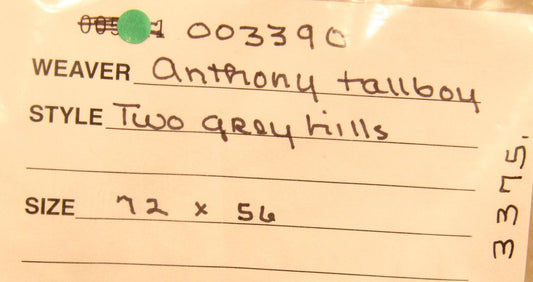 003390
WEAVER Anthony tallboy
STYLE Two grey hills
SIZE 72 x 56
3375.